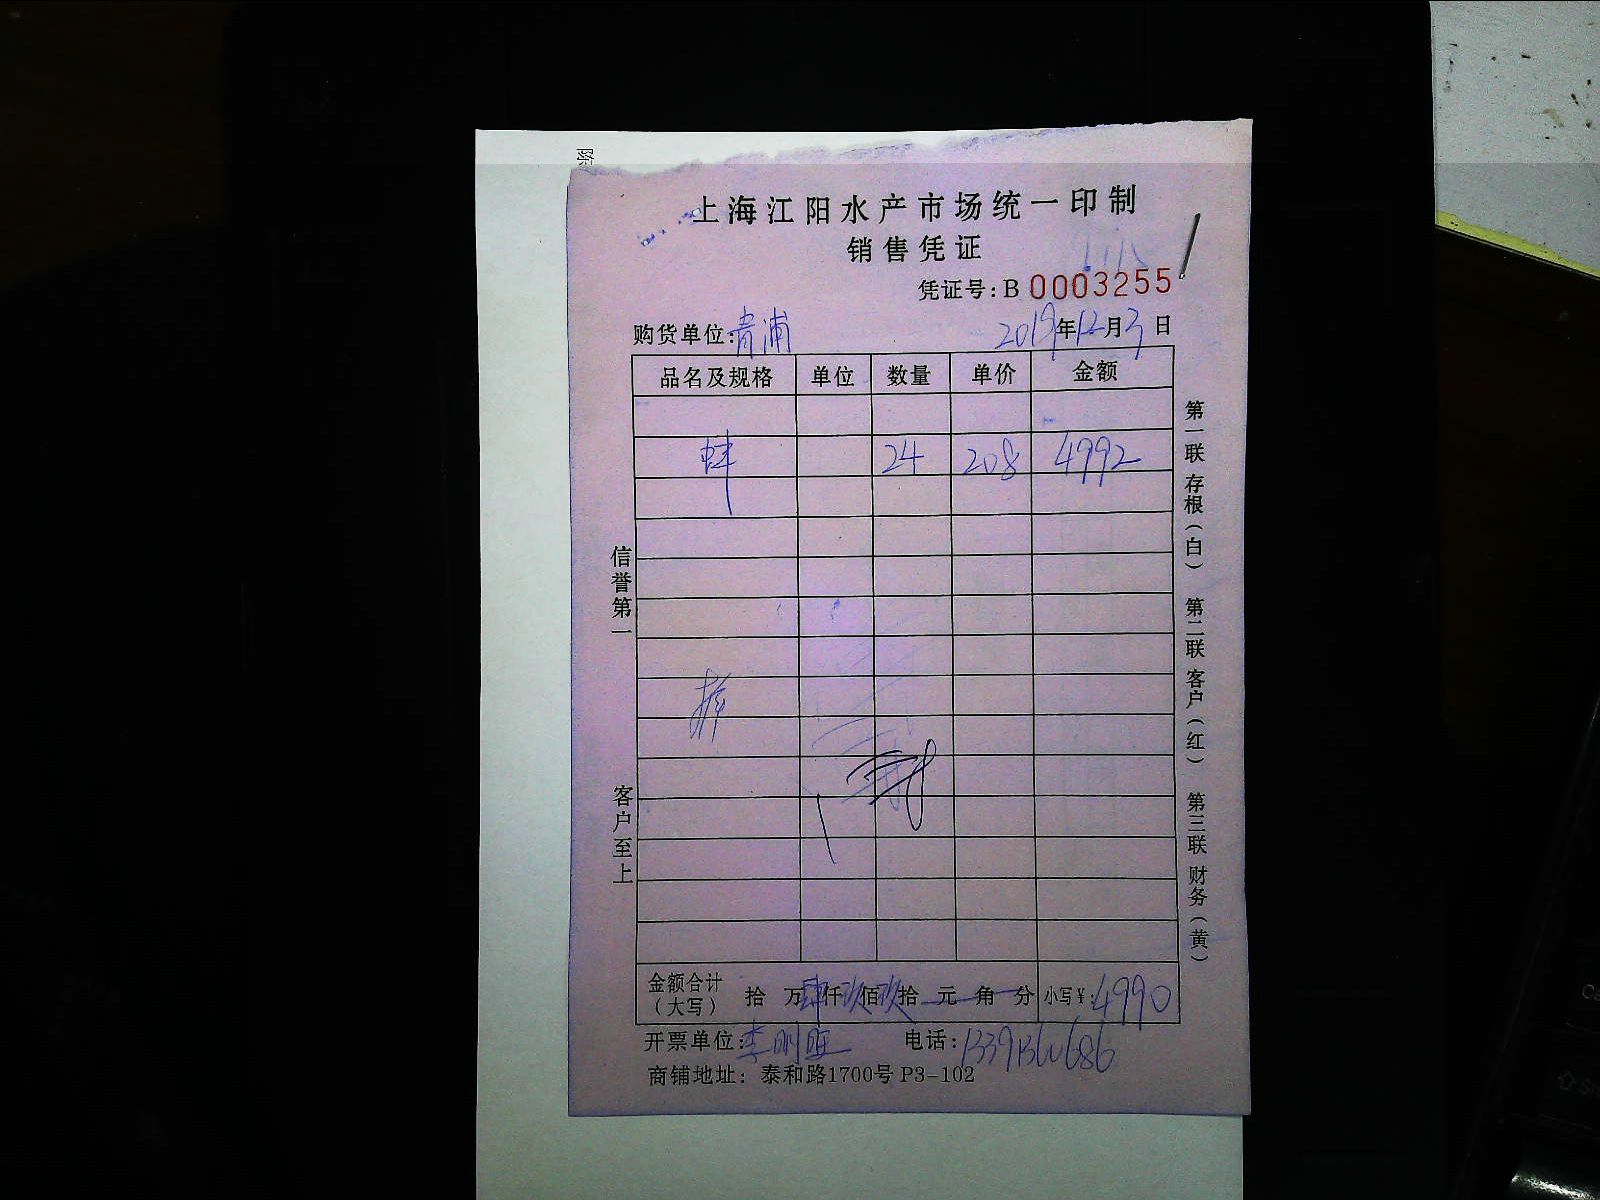 上海江阳水产市场统一印制
销售凭证
凭证号：B 0003255
购货单位：青浦 2019年12月3日
品名及规格 单位 数量 单价 金额
蚌 24 208 4992
信誉第一
客户至上
第一联 存根（白） 第二联 客户（红） 第三联 财务（黄）
金额合计（大写） 拾 万肆仟玖佰玖拾 元 角 分 小写¥：4990
开票单位：李明旺 电话：
商铺地址：泰和路1700号 P3-102